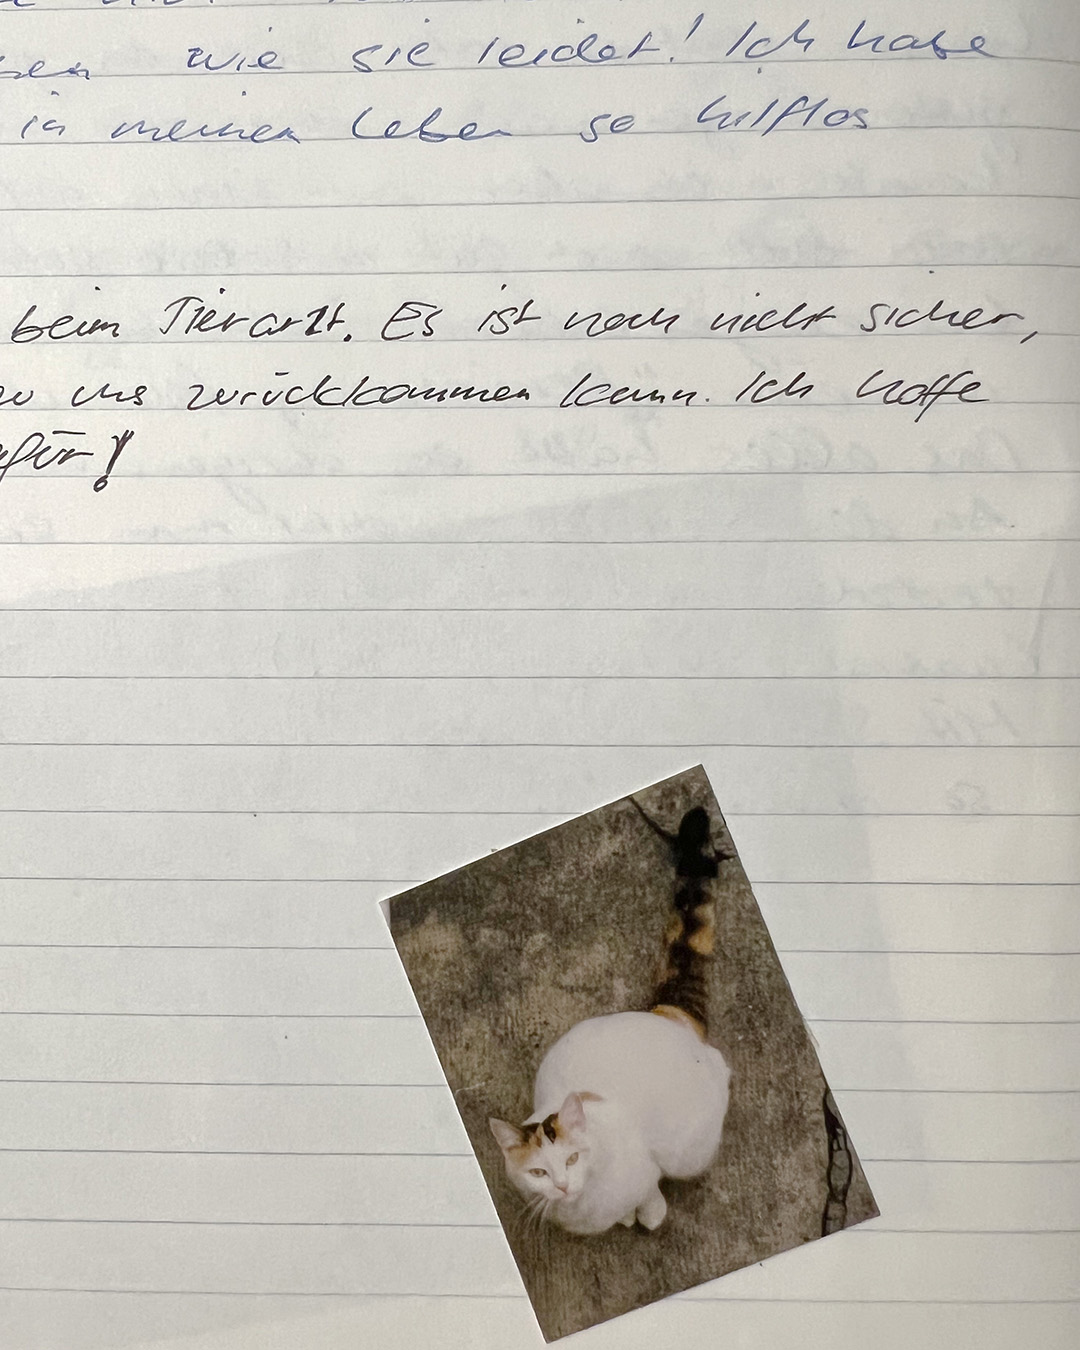 wie sie leidet! Ich habe
in meinen Leben so hilflos
beim Tierarzt. Es ist noch nicht sicher,
uns zurückkommen kann. Ich hoffe